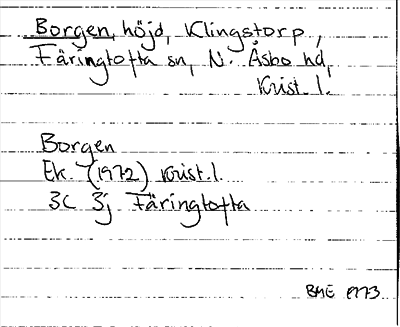 Borgen, höjd, Klingstorp,
Färingtofta sn, N. Åsbo hd,
Krist. l.
Borgen
Ek. (1972) Krist. l.
3C 3j Färingtofta